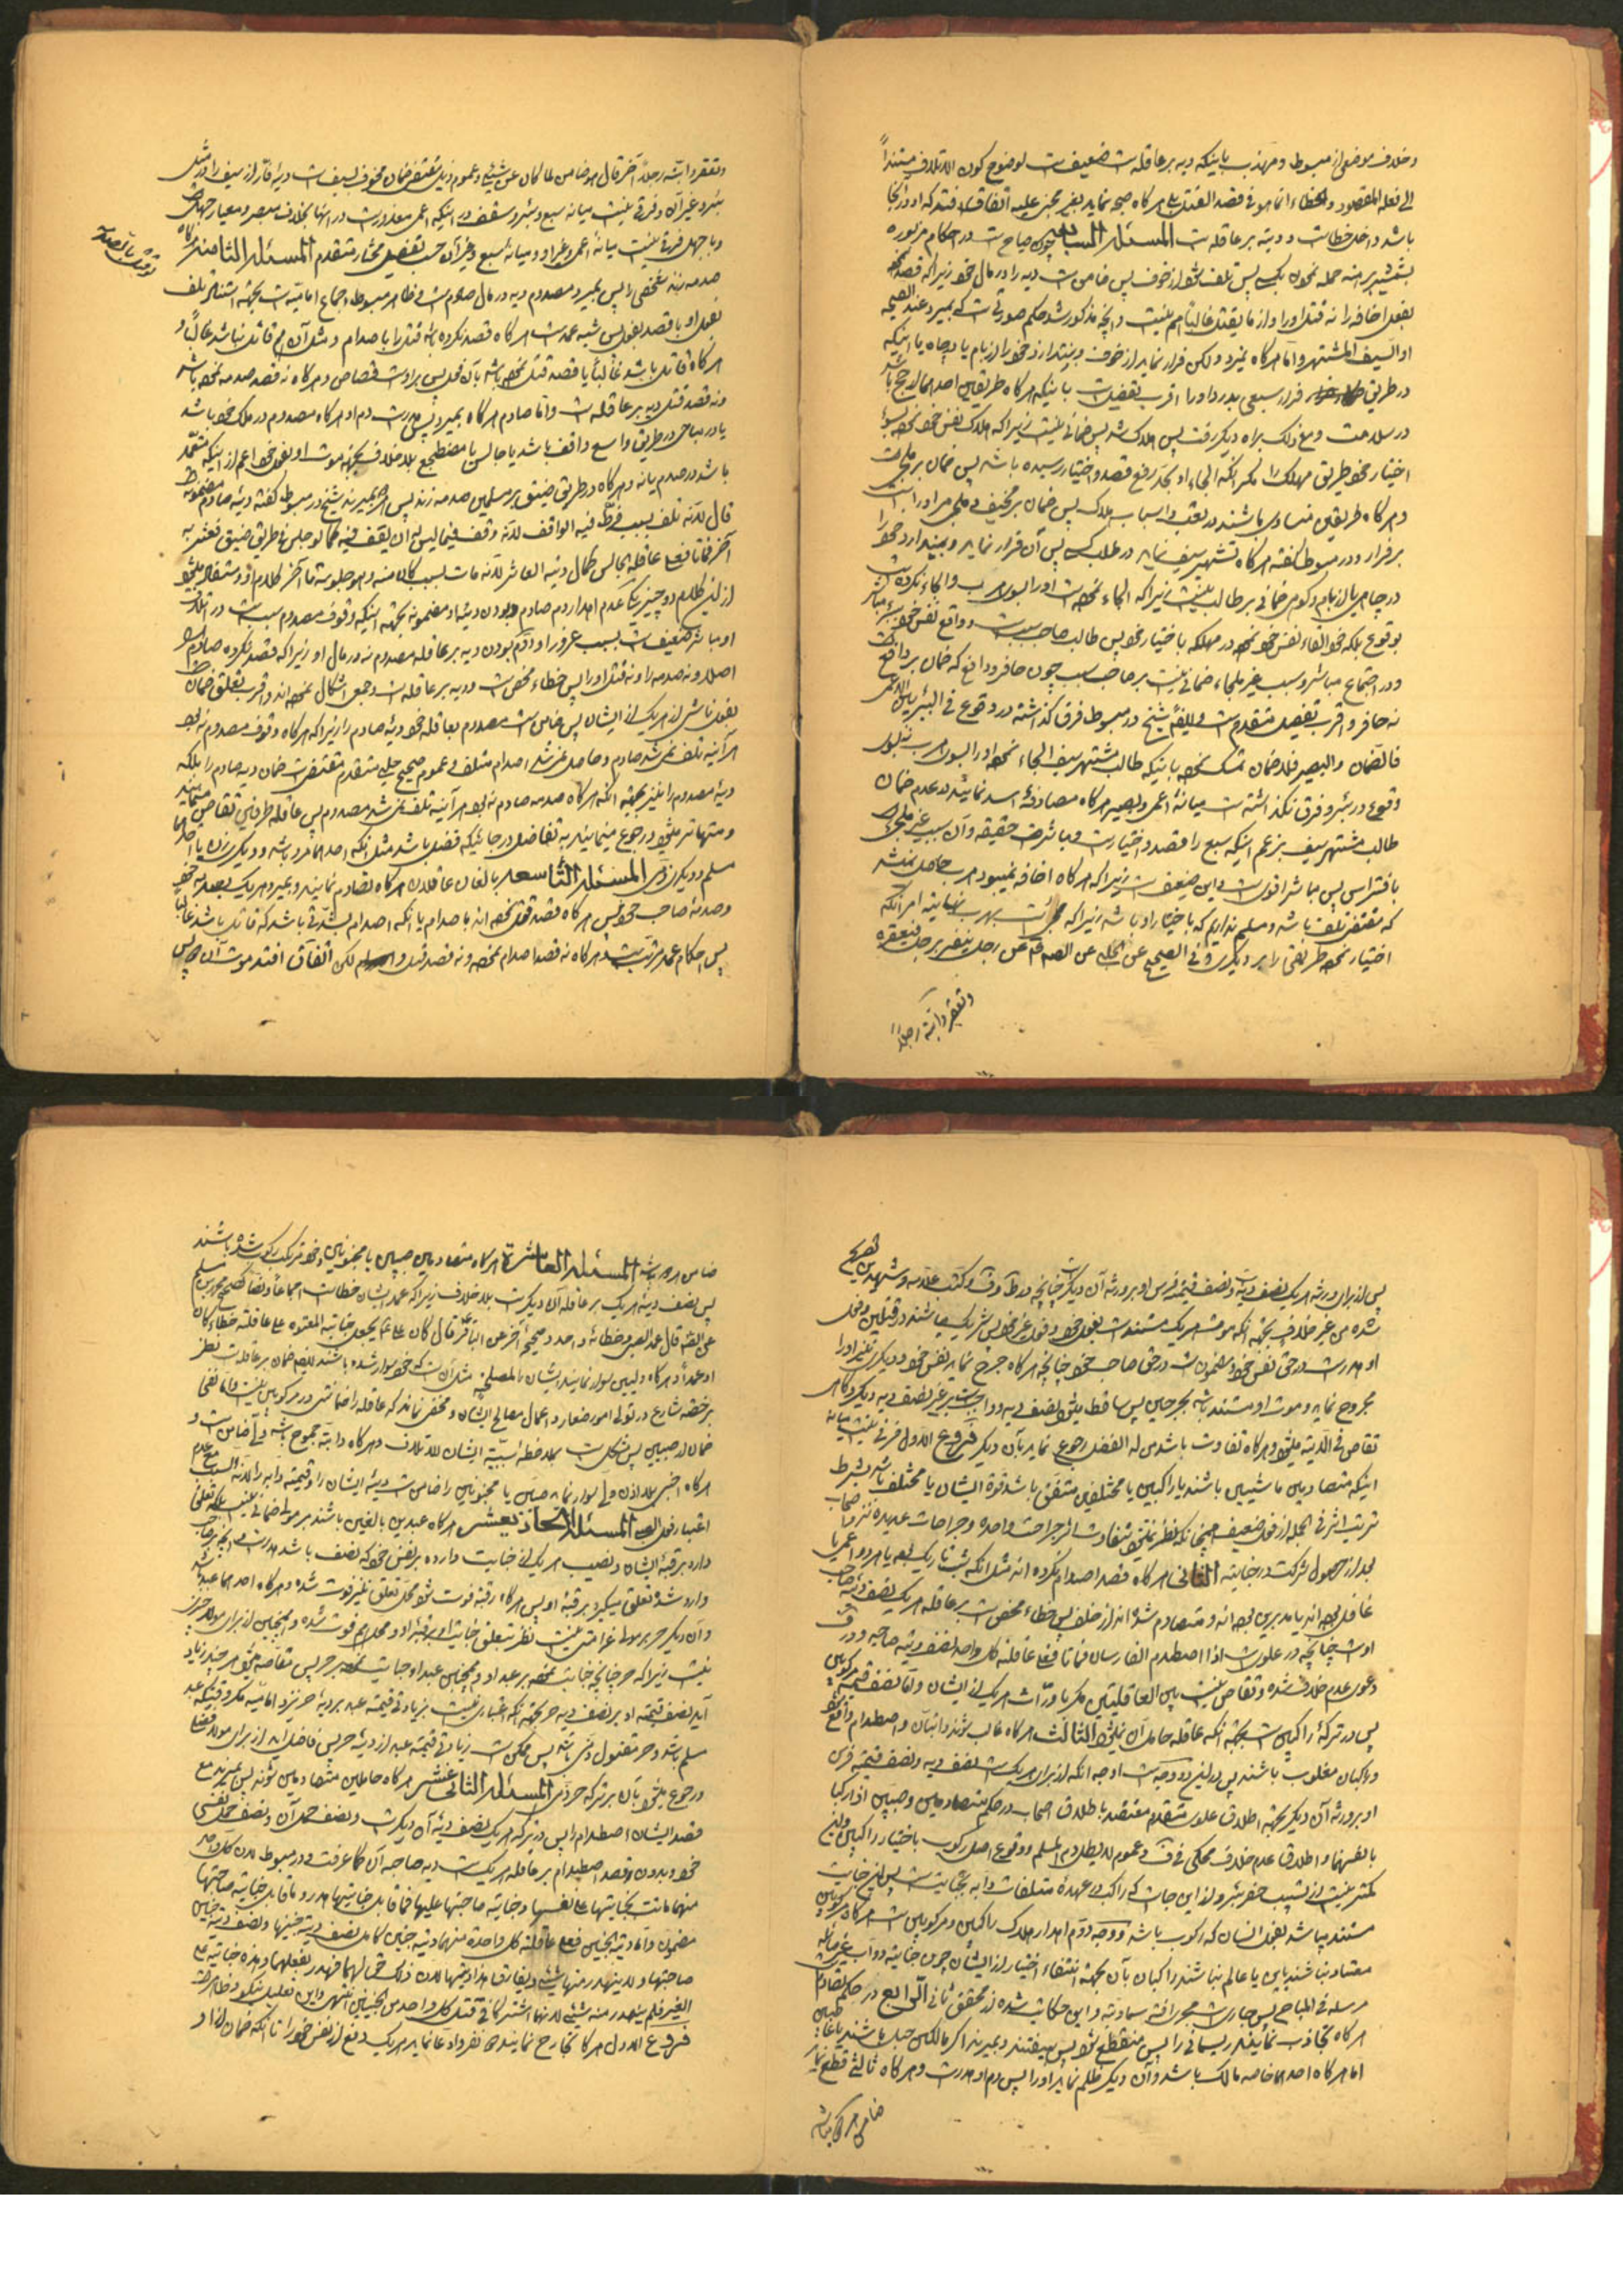 وخلاف موضعی از مبسوط و مهذب باینکه دیه بر عاقله است ضعیف است لوضوح کون الاتلاف مستنداً
الی فعله المقصود والخطاء انما هو فی قصد القتل بلی هرگاه صیحه نماید بغیر مجنی علیه اتفاق افتد که او در آنجا
باشد داخل خطاست و دیته بر عاقله است المسئلة السابعه چون صیاح است در احکام مزبوره
بشمشیر برهنه حمله نمودن بکسی پس تلف شود از خوف پس ضامن است دیه را در مال خود زیرا که قصد نموده
بفعل اخافه را نه قتل او را و از ما یقتل غالباً هم نیست و آنچه مذکور شد حکم صورتی است که بمیرد عند الصیحه
او السیف المشتهر و اما هرگاه نمیرد ولکن فرار نماید از خوف و بیندازد خود را از بام یا در چاه یا اینکه
در طریق فرار سبعی بدرد او را اقرب تفصیل است باینکه هرگاه طریقین احدهما ارجح باشد
در سلامت و مع ذلک براه دیگر رفت پس هلاک شد پس ضمانی نیست زیرا که اهلاک نفس خود نموده بسوء
اختیار خود طریق مهلک را مگر آنکه الجاء او بحد رفع قصد و اختیار رسیده باشد پس ضمان بر ملجئ است
و هرگاه طریقین متساوی باشند در تعب و اسباب هلاک پس ضمان بر مخیف و ملجئ مر او راست
بر فرار و در مبسوط گفته هرگاه تشهیر سیف نماید در طلب کسی پس آن فرار نماید و بیندازد خود را
در چاه یا از بام و کوه ضمانی بر طالب نیست زیرا که الجاء نموده است او را بسوی هرب و الجاء نکرده است
بوقوع بلکه خود القاء نفس خود نموده در مهلکه باختیار خود پس طالب صاحب سبب است و واقع نفس خود مباشر
و در اجتماع مباشر و سبب غیر ملجاء ضمانی نیست بر صاحب سبب چون حافر و دافع که ضمان بر دافع است
نه حافر و اقرب تفصیل متقدم است و للیضه شیخ در مبسوط فرق گذاشته در وقوع فی البئر بین الاعمی
فالضمان والبصیر فلا ضمان تمسک نموده باینکه طالب مشتهر سیف الجاء نموده او را بسوی هرب نه بسوی
وقوع در بئر و فرق نگذاشته است میانه اعمی و بصیر هرگاه مصادفه اسد نمایند در عدم ضمان
طالب مشتهر سیف بزعم اینکه سبع را قصد و اختیار است و مباشرت حقیقه و آن سبب غیر ملجئ
بافتراس پس مباشر اقوی است و این ضعیف است زیرا که هرگاه اخافه نمیبود هرب حاصل نمیشد
که مقتضی تلف باشد و مسلم نداریم که باختیار او باشد زیرا که مجرای است بهرب نهایت امر آنکه
اختیار نموده طریقی را بر دیگری و فی الصحیح عن الحلبی عن الصم قه عن رجل ینفر برجل فیعقره
وتعقر دابته رجلاً

وتعقر دابته رجلاً آخر قال هو ضامن لما کان عن شیء و عموم ذیل مقتضی ضمان مخوف بسیف است دیه فار از سیف را در مثل
بئر و غیر آن و فرقی نیست میانه سبع و بئر و سقف در اینکه اعمی معذور است در اینها بخلاف مبصر و معیار جهل است
و با جهل فرقی نیست میانه اعمی و غیر او و میانه سبع و غیر آن حسب تفصیل مختار متقدم المسئلة الثامنه هرگاه
صدمه زند شخصی را پس بمیرد مصدوم دیه در مال صادم است و ظاهر مبسوط اجماع امامیه است بجهة استناد تلف
بفعل او با قصد بفعل پس شبیه عمد است هرگاه قصد نکرده باشد قتل را با صدام و مثل آن هم قاتل نباشد غالباً و
هرگاه قاتل باشد غالباً یا قصد قتل نموده باشد بآن فعل پس بر اوست قصاص و هرگاه نه قصد صدمه نموده باشد
و نه قصد قتل دیه بر عاقله است و اما صادم هرگاه بمیرد پس هدر است دم او هرگاه مصدوم در ملک خود باشد
یا در مباحی در طریق واسع واقف باشد یا جالس یا مضطجع بلا خلاف بجهة موت او بفعل خود اعم از اینکه متعمد
باشد در صدم یا نه و هرگاه در طریق ضیق بر مسلمین صدمه زند پس هر دو بمیرند شیخ در مبسوط گفته دیه صادم مضمونه
قال لانه تلف بسبب فرط فیه الواقف لانه وقف فیما لیس له ان یقف فیه کما لو جلس فی طریق ضیق فعثر به
آخر فماتا فعلی عاقلة الجالس کمال دیته العاثر لانه مات بسبب کان منه و هو جلوسه تا آخر کلام او و مستفاد میشود
از این کلام دو چیز یکی عدم اهدار دم صادم و بودن دیه او مضمونه بجهة اینکه وقوف مصدوم سبب است در اتلاف
او مباشر ضعیف است بسبب غرور او و دوم بودن دیه بر عاقله مصدوم نه در مال او زیرا که قصد نکرده صادم را
اصلا و نه صدمه را و نه قتل او را پس خطاء محض است و دیه بر عاقله است و جمعی اشکال نموده اند و اقرب تعلق ضمان است
بفعل ناشی از هر یک از ایشان پس ضامن است مصدوم بعاقله خود دیه صادم را زیرا که هرگاه وقوف مصدوم نبود
هر آینه تلف نمیشد صادم و حاصل نمیشد اصدام متلف و عموم صحیح حلبی متقدم مقتضی است ضمان دیه صادم را بلکه
دیه مصدوم را نیز بجهة آنکه هرگاه صدمه صادم نبود هر آینه تلف نمیشد مصدوم پس عاقله طرفین تقاص مینمایند
و متهاتر میشود و رجوع مینمایند به تفاضل در جائیکه فضل باشد مثل آنکه احدهما مرد باشد و دیگری زن یا احدهما
مسلم و دیگری ذمی المسئلة التاسعه بالغان عاقلان هرگاه تصادم نمایند و بمیرد هر یک بصدمه خود
و صدمه صاحب خود پس هرگاه قصد قتل نموده اند با صدام یا آنکه اصدام بشدتی باشد که قاتل باشد غالباً
پس احکام عمد مرتب میشود و هرگاه نه قصد اصدام نموده و نه قصد قتل لکن اتفاق افتد موت آنها پس

پس از برای ورثه هر یک نصف دیه است و نصف قیمة فرس او بر ورثه آن دیگر است چنانچه در ط و ف و کتب علامه و شهیدین تصریح
شده من غیر خلاف بجهة آنکه موت هر یک مستند است بفعل خود و فعل غیر خود پس شریک میباشند در قتلین و فعل
او هدر است در حق نفس خود و مضمون است در حق صاحب خود چنانچه هرگاه جرح نماید نفس خود و دیگری نیز او را
مجروح نماید و موت او مستند باشد بجرحین پس ساقط میشود نصف دیه و واجب است بر غیر نصف دیه دیگر و گاهی
تقاص فی الدیة میشود و هرگاه تفاوت باشد من له الفضل رجوع نماید بآن دیگر فروع الاول فرقی نیست میانه
اینکه متصادمین ماشیین باشند یا راکبین یا مختلفین متفق باشد قوة ایشان یا مختلف باشد بشرط
ترتب اثر فی الجمله از فعل ضعیف همچنانکه نظر نمیشود بتفاوت اثر جراحت واحده و جراحات عدیده نزد اصحاب
بعد از حصول شرکت در جنایته الثانی هرگاه قصد اصدام نکرده اند مثل آنکه شب تاریک بود یا هر دو اعمی یا
غافل بوده اند یا مدبرین بوده اند و متصادم شده اند از خلف پس خطاء محض است بر عاقله هر یک نصف دیه صاحب
اوست چنانچه در علوی است اذا اصطدم الفارسان فماتا فعلی عاقلة کل واحد نصف دیة صاحبه و در ف
دعوی عدم خلاف شده و تقاص نیست بین العاقلتین مگر با وراثت هر یک از ایشان و اما نصف قیمة مرکوبین
پس در ترکه راکبین است بجهة آنکه عاقله حامل آن نمیشود الثالث هرگاه غالب شوند دابتان و اصطدام واقع شود
و راکبان مغلوب باشند پس در این دو وجه است اوجه آنکه از برای هر یک است نصف دیه و نصف قیمة فرس
او بر ورثه آن دیگر بجهة اطلاق علوی متقدم معتضد باطلاق اصحاب در حکم متصادمین و صبیین اذا رکبا
بانفسهما و اطلاق عدم خلاف محکی فی ف و عموم لا یطل دم المسلم و وقوع اصل رکوب باختیار راکبین و این
کمتر نیست از تسبیب حفر بئر و از این جاست که راکب در عهده متلفات دابه بجنایت است پس این جنایت
مستند میباشد بفعل انسان که رکوب باشد و وجه دوم اهدار هلاک راکبین و مرکوبین است هرگاه مرکوبین
معتاد نباشند باین یا عالم نباشند راکبان بآن بجهة انتفاء اختیار از ایشان چون جنایته دواب غیر مالکه
مرسله فی المباح پس جاری است مجری آفة سماویه و این حکایت شده از محقق ثانی الرابع در حکم تصادم است
هرگاه تجاذب نمایند ریسمانی را پس منقطع شود پس بیفتند و بمیرند اگر مالکین حبل باشند یا غاصبین
اما هرگاه احدهما خاصه مالک باشد و آن دیگر ظلم نماید او را پس دم او هدر است و هرگاه ثالثی قطع نماید
ضامن هر دو میباشد

ضامن هر دو باشد المسئلة العاشرة هرگاه متصادمین صبیین یا مجنونین و خود مرتکب رکوب شده باشند
پس نصف دیه هر یک بر عاقله آن دیگر است بلا خلاف زیرا که عمد ایشان خطاست اجماعاً و نصاً کصحیح محمد بن مسلم
عن الصم قال عمد الصبی و خطائه واحد و صحیح آخر عن الباقر قال کان علی ع یجعل جنایة المعتوه علی عاقلته خطاء کان
او عمداً و هرگاه ولیین سوار نمایند ایشان را لمصلحة مثل آن است که خود سوار شده باشند لعدم ضمان بر عاقله است نظر
برخصة شارع در تولی امور صغار و اعمال مصالح ایشان و مخفی نماند که عاقله را ضمانتی در مرکوبین نیست و اما نفی
ضمان از صبیین پس مشکل است بملاحظه سببیت ایشان للاتلاف و هرگاه دابه جموح باشد ولی ضامن است و
هرگاه اجنبی بلا اذن ولی سوار نماید صبیین یا مجنونین را ضامن است دیه ایشان را و قیمة دابه را لانه السبب مع عدم
اعتبار فعل الصبی المسئلة الحادیعشر هرگاه عبدین بالغین باشند بر مولی ضمانی نیست بلکه تعلق
دارد برقبه ایشان و نصیب هر یک از جنایت وارده بر نفس خود که نصف باشد هدر است و آنچه بر صاحب
وارد شده تعلق میگیرد برقبه او پس هرگاه رقبه فوت شود محل تعلق نیز فوت شده و هرگاه احدهما عبد باشد
و آن دیگر حر بر مولا غرامتی نیست نظر بتعلق جنایت او برقبه او و محل هم فوت شده و همچنین از برای مولا چیزی
نیست زیرا که حر چنانچه جنایت نموده بر عبد او و همچنین عبد او جنایت نموده بر حر پس تقاص میشود هر چند زیاد
آید نصف قیمة او بر نصف دیه حر بجهة آنکه اعتباری نیست بزیادتی قیمة عبد بر دیه حر نزد امامیه مگر وقتیکه عبد
مسلم باشد و حر مقتول ذمی باشد پس ممکن است زیادتی قیمة عبد از دیه حر پس فاضل آید از برای مولا فضل
و رجوع میشود بآن بر ترکه حر ذمی المسئلة الثانی عشر هرگاه حاملین متصادمین شوند پس بمیرند مع
قصد ایشان اصطدام را پس در ترکه هر یک نصف دیه آن دیگر است و نصف حمل آن و نصف حمل نفسی
خود و بدون قصد اصطدام بر عاقله هر یک است دیه صاحبه آن کما عرفت و در مبسوط لان کل واحد
منهما ماتت بجنایتها علی نفسها و جنایة صاحبتها علیها فما قابل جنایتها هدر و ما قابل جنایة صاحبتها
مضمون و اما دیة الجنین فعلی عاقلة کل واحدة منهما دیة جنین کامل نصف دیة جنینها و نصف دیة جنین
صاحبتها و لا یهدر منها شیء و یفارق هذا دیتها لان ذلک حمالهما فهدر بفعلهما و هذه جنایة علی
الغیر فلم یهدر منه شیء لانهما اشترکا فی قتل کل واحد من الجنینین انتهی و این تعلیل نیکو و ظاهر است
فروع الاول هرگاه تجارح نمایند دو نفر و ادعا نماید هر یک دفع از نفس خود را تا آنکه ضمان از او